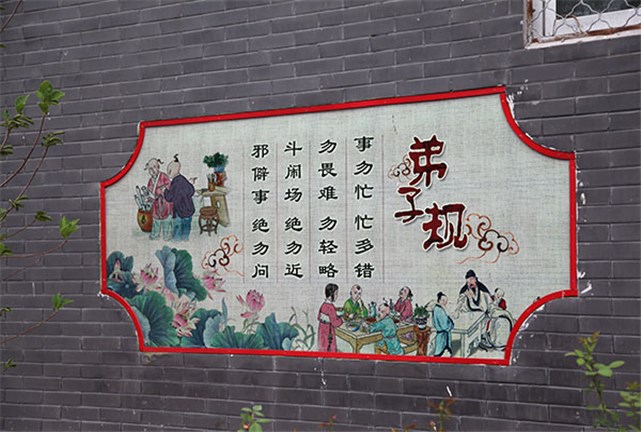 弟子规
事勿忙 忙多错
勿畏难 勿轻略
斗闹场 绝勿近
邪僻事 绝勿问